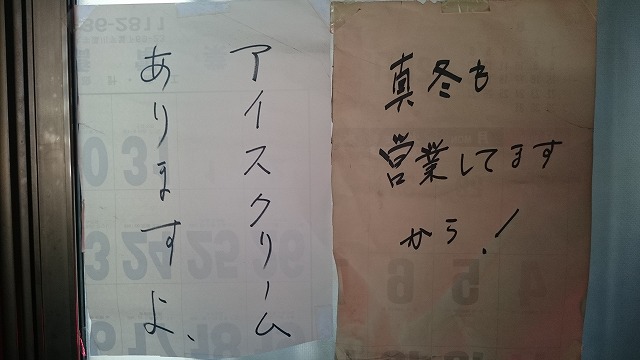 アイスクリーム
ありますよ、
真冬も
営業してます
から、!